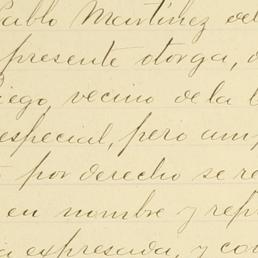 Pablo Martínez del
presente otorga, d
iego, vecino de la C
especial, pero amp
por derecho se re
en nombre y repr
ia expresada, y con